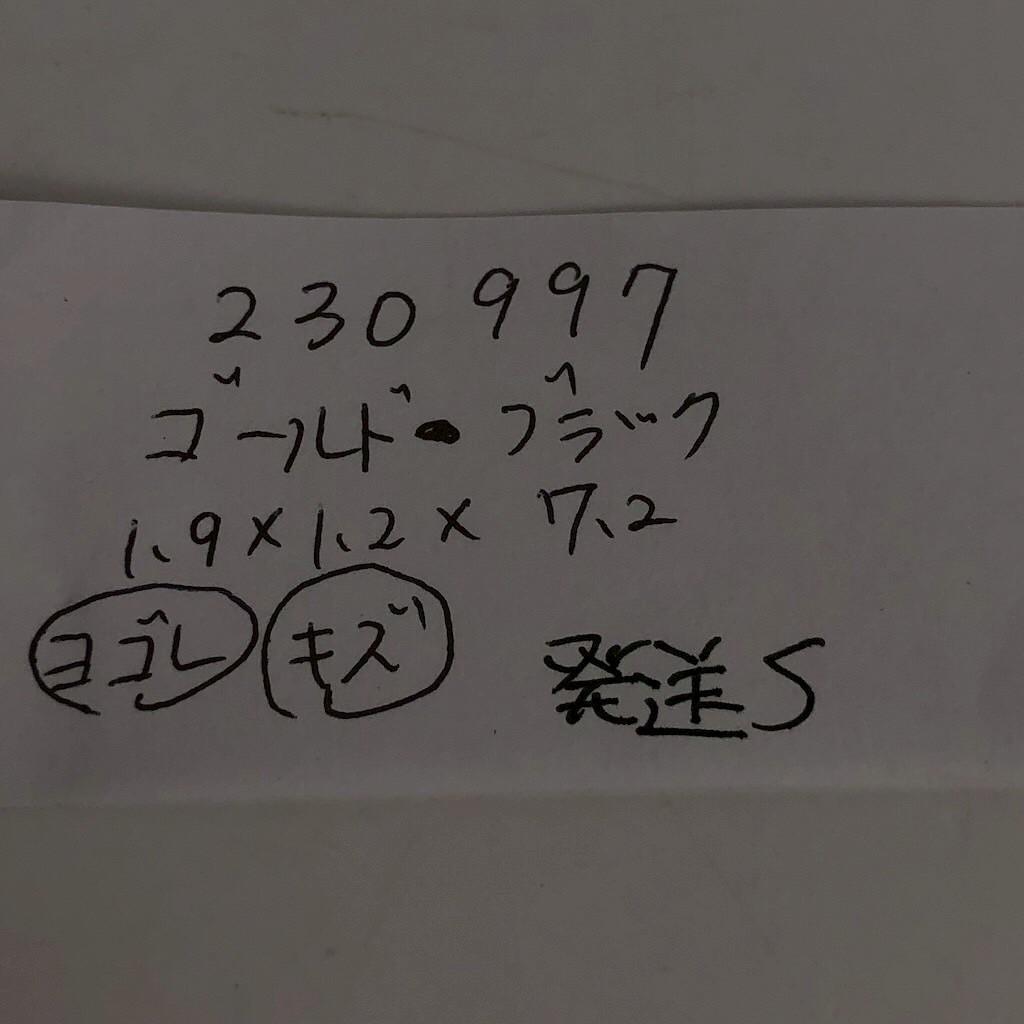 230997
ゴールド・ブラック
1.9×1.2×7.2
ヨゴレ キズ 発送S